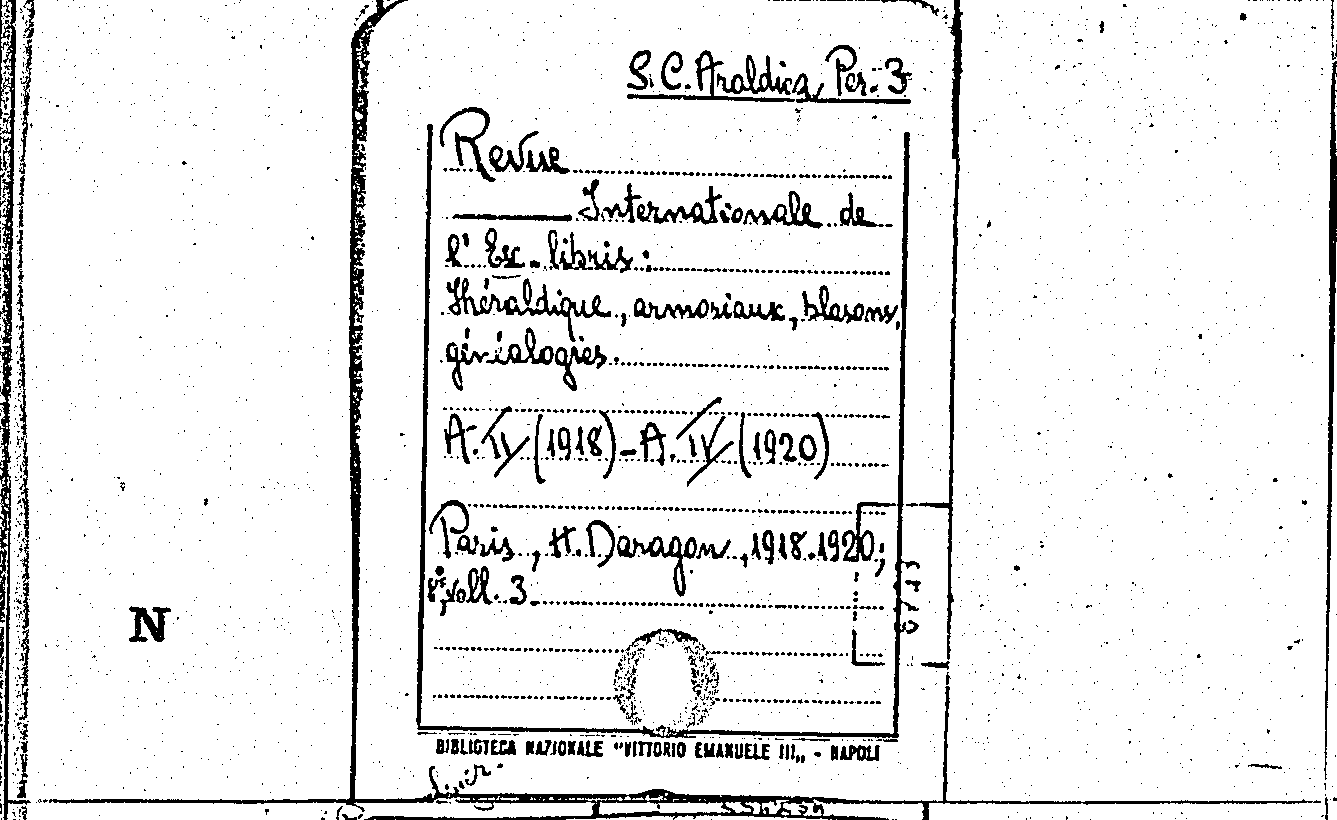 S.C. Araldica, Per. 3
Revue
Internationale de
l'Ex-libris:
Héraldique, armoriaux, blasons,
généalogies.
A. II (1918) - A. IV (1920)
Paris, H. Daragon, 1918-1920;
8°; voll. 3.
N
BIBLIOTECA NAZIONALE "VITTORIO EMANUELE III„ - NAPOLI